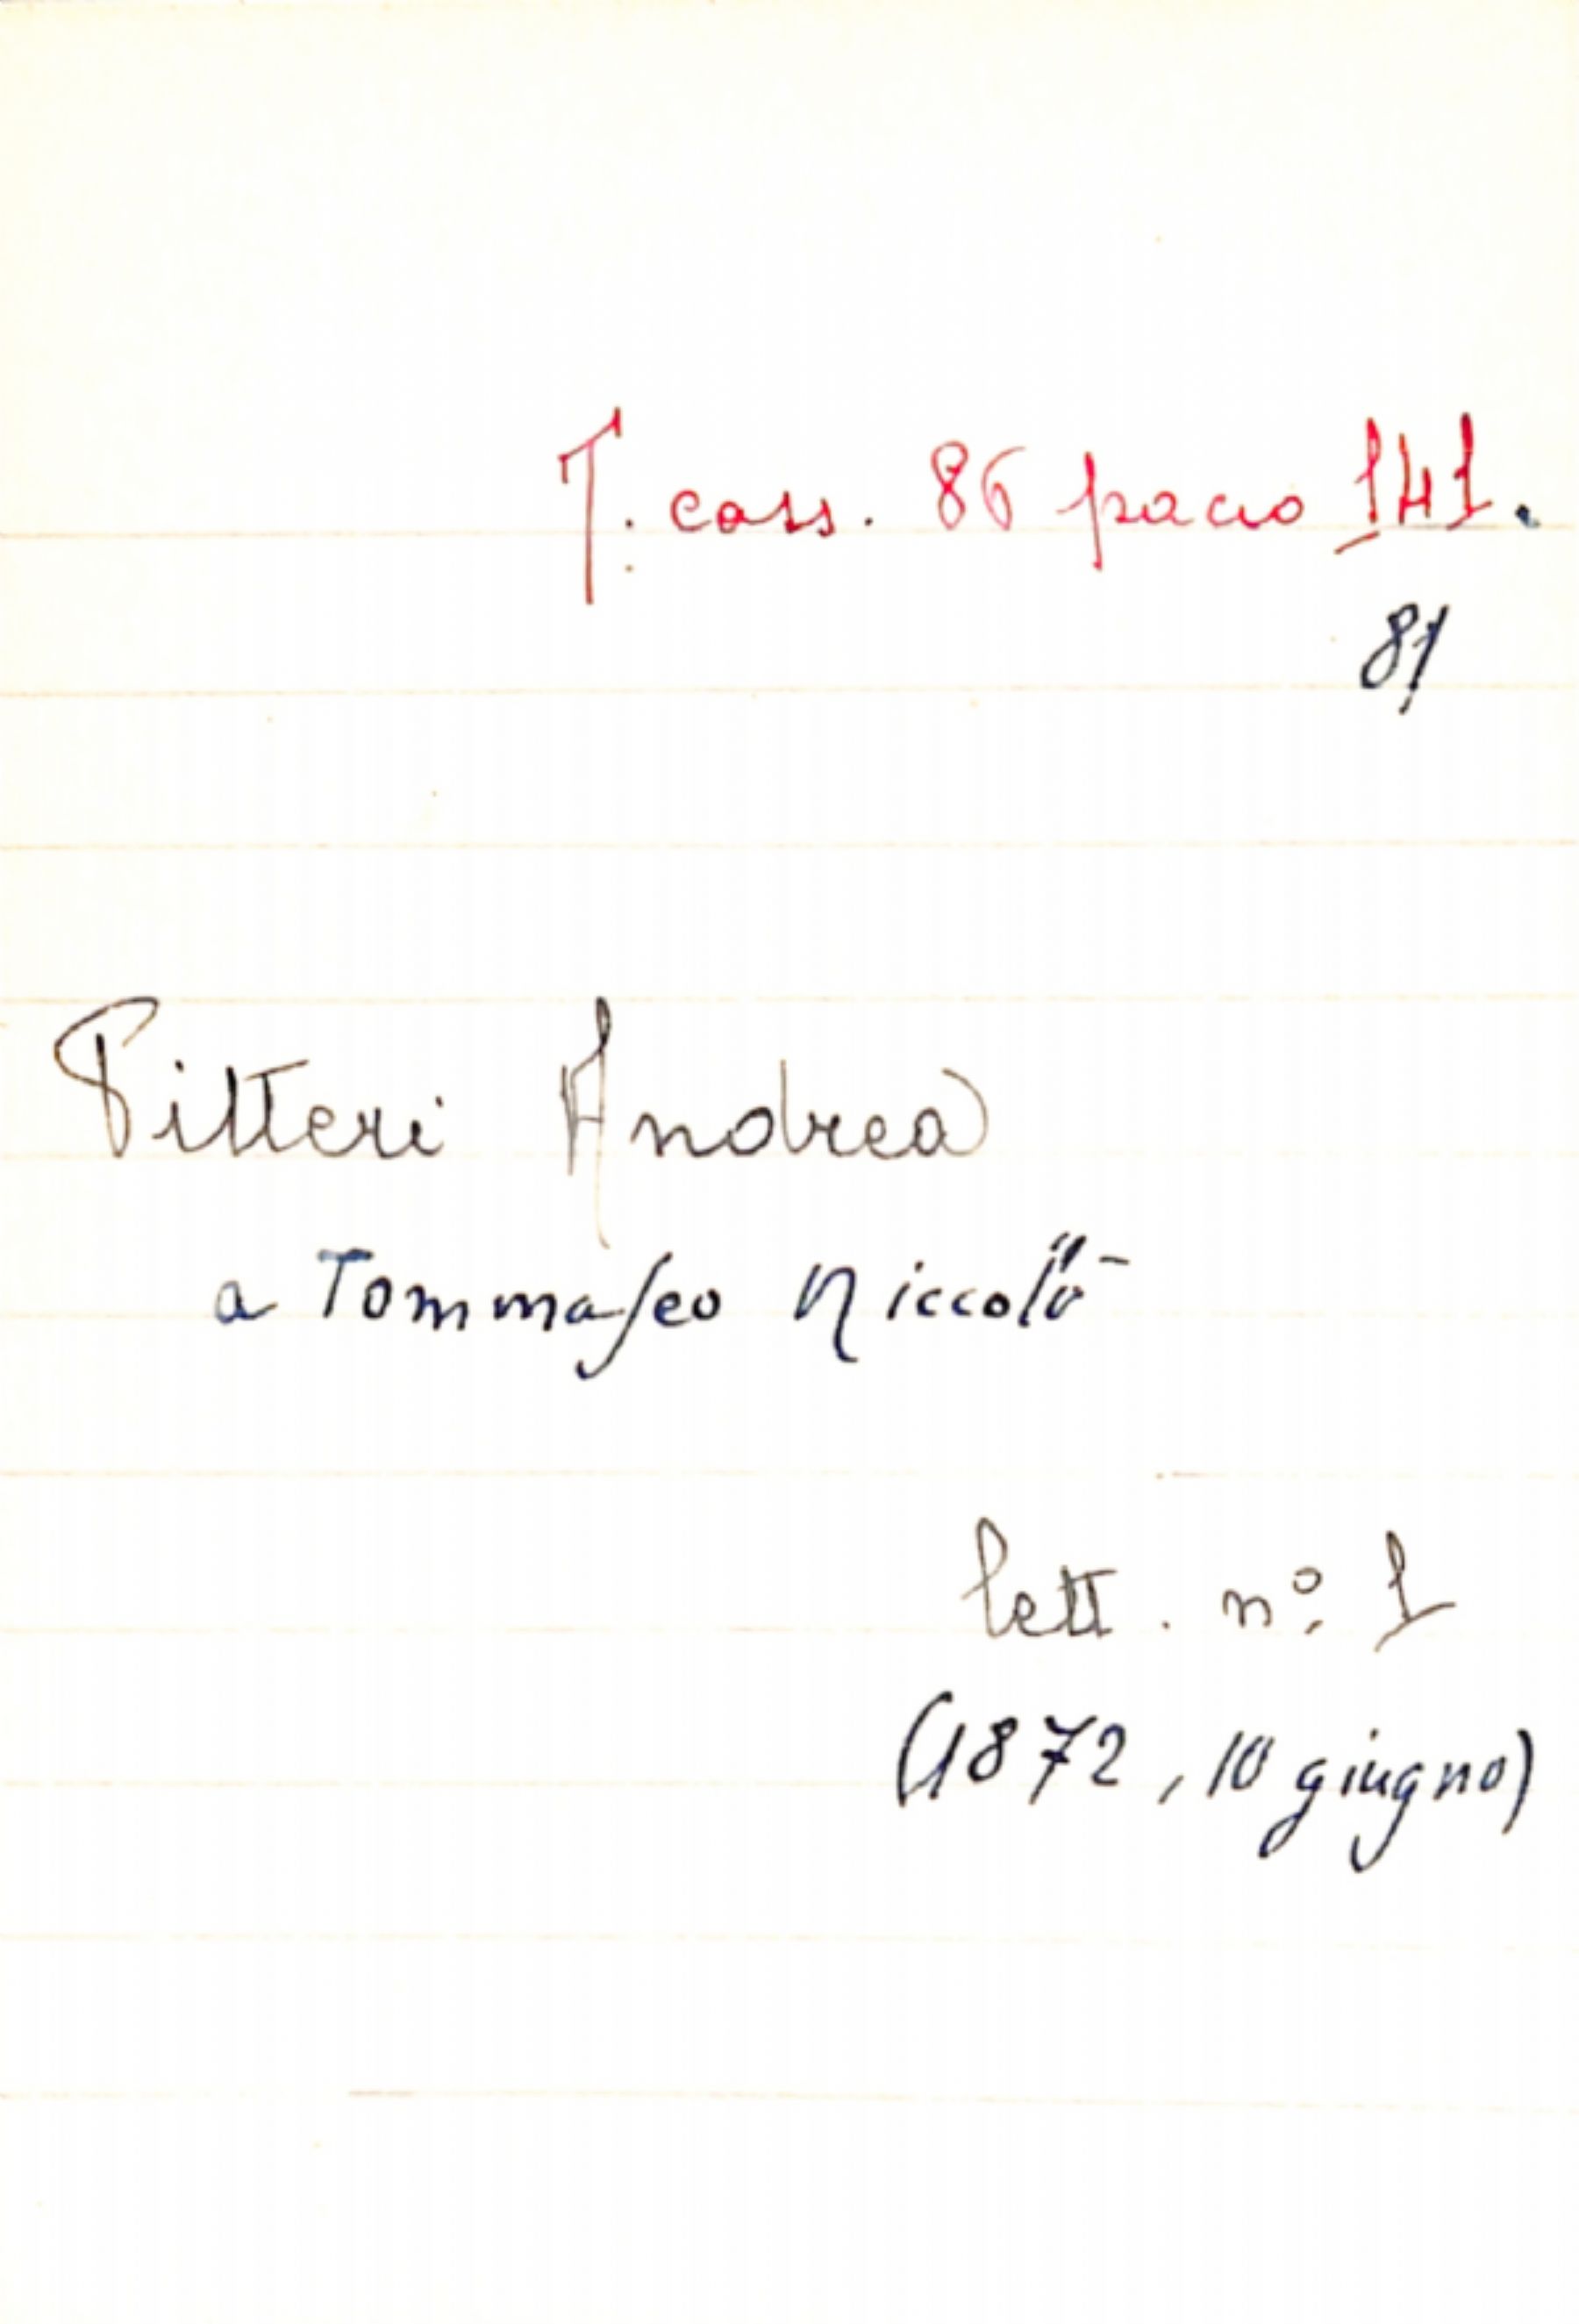 T. cass. 86 pacco 141.
81
Pitteri Andrea
a Tommaseo Niccolò
lett. nº 1
(1872, 10 giugno)